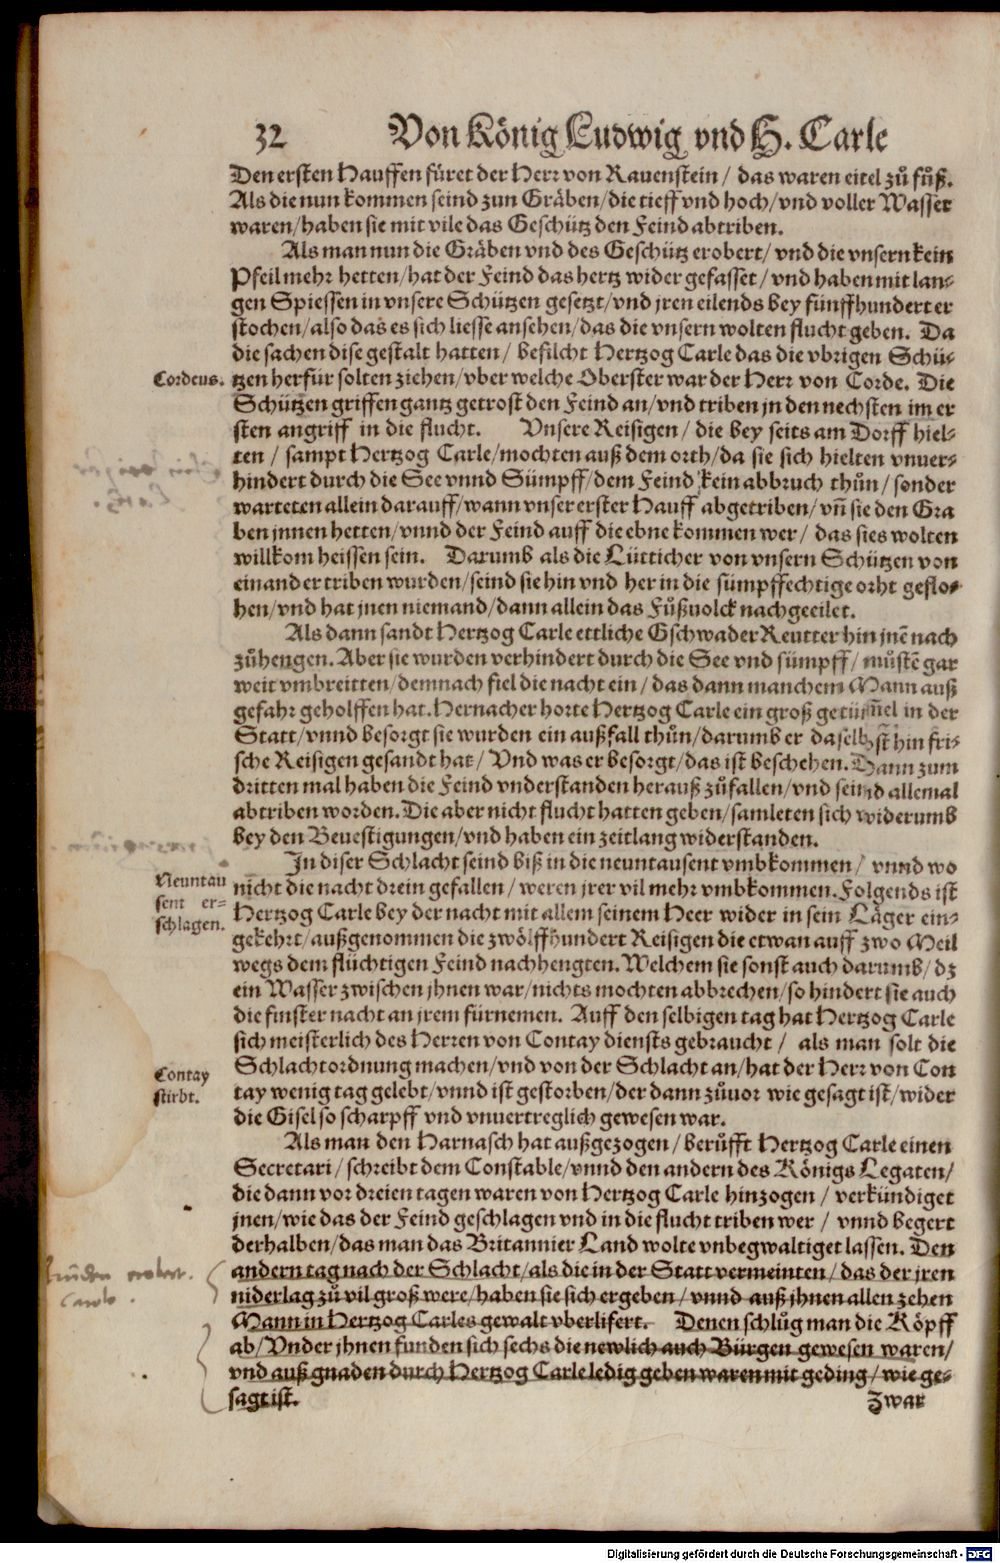 32 Von König Ludwig vnd H. Carle
Den ersten Hauffen füret der Herr von Rauenstein / das waren eitel zů fůß.
Als die nun kommen seind zun Gräben / die tieff vnd hoch / vnd voller Wasser
waren / haben sie mit vile das Geschütz den Feind abtriben.
Als man nun die Gräben vnd des Geschütz erobert / vnd die vnsern kein
Pfeil mehr hetten / hat der Feind das hertz wider gefasset / vnd haben mit lan-
gen Spiessen in vnsere Schützen gesetzt / vnd jren eilends bey fünffhundert er
stochen / also das es sich liesse ansehen / das die vnsern wolten flucht geben. Da
die sachen dise gestalt hatten / befilcht Hertzog Carle das die vbrigen Schü-
Cordeus.
tzen herfür solten ziehen / vber welche Oberster war der Herr von Corde. Die
Schützen griffen gantz getrost den Feind an / vnd triben jn den nechsten im er
sten angriff in die flucht. Vnsere Reisigen / die bey seits am Dorff hiel-
ten / sampt Hertzog Carle / mochten auß dem orth / da sie sich hielten vnuer-
hindert durch die See vnnd Sümpff / dem Feind kein abbruch thůn / sonder
warteten allein darauff / wann vnser erster Hauff abgetriben / vn̄ sie den Gra
ben jnnen hetten / vnnd der Feind auff die ebne kommen wer / das sies wolten
willkom heissen sein. Darumb als die Lütticher von vnsern Schützen von
einander triben wurden / seind sie hin vnd her in die sümpffechtige orht geflo-
hen / vnd hat jnen niemand / dann allein das Fůßuolck nachgeeilet.
Als dann sandt Hertzog Carle ettliche Gschwader Reutter hin jnē nach
zůhengen. Aber sie wurden verhindert durch die See vnd sümpff / můstē gar
weit vmbreitten / demnach fiel die nacht ein / das dann manchem Mann auß
gefahr geholffen hat. Hernacher horte Hertzog Carle ein groß getüm̄el in der
Statt / vnnd besorgt sie wurden ein außfall thůn / darumb er daselbst hin fri-
sche Reisigen gesandt hat / Vnd was er besorgt / das ist beschehen. Dann zum
dritten mal haben die Feind vnderstanden herauß zůfallen / vnd seind allemal
abtriben worden. Die aber nicht flucht hatten geben / samleten sich widerumb
bey den Beuestigungen / vnd haben ein zeitlang widerstanden.
In diser Schlacht seind biß in die neuntausent vmbkommen / vnnd wo
Neuntau
sent er-
schlagen.
nicht die nacht drein gefallen / weren jrer vil mehr vmbkommen. Folgends ist
Hertzog Carle bey der nacht mit allem seinem Heer wider in sein Läger ein-
gekehrt / außgenommen die zwölffhundert Reisigen die etwan auff zwo Meil
wegs dem flüchtigen Feind nachhengten. Welchem sie sonst auch darumb / dz
ein Wasser zwischen jhnen war / nichts mochten abbrechen / so hindert sie auch
die finster nacht an jrem fürnemen. Auff den selbigen tag hat Hertzog Carle
sich meisterlich des Herren von Contay diensts gebraucht / als man solt die
Contay
stirbt.
Schlachtordnung machen / vnd von der Schlacht an / hat der Herr von Con
tay wenig tag gelebt / vnnd ist gestorben / der dann zůuor wie gesagt ist / wider
die Gisel so scharpff vnd vnuertreglich gewesen war.
Als man den Harnasch hat außgezogen / berůfft Hertzog Carle einen
Secretari / schreibt dem Constable / vnnd den andern des Königs Legaten /
die dann vor dreien tagen waren von Hertzog Carle hinzogen / verkündiget
jnen / wie das der Feind geschlagen vnd in die flucht triben wer / vnnd begert
derhalben / das man das Britannier Land wolte vnbegwaltiget lassen. Den
andern tag nach der Schlacht / als die in der Statt vermeinten / das der jren
niderlag zů vil groß were / haben sie sich ergeben / vnnd auß jhnen allen zehen
Mann in Hertzog Carles gewalt vberlifert. Denen schlůg man die Köpff
ab / Vnder jhnen funden sich sechs die newlich auch Bürgen gewesen waren /
vnd auß gnaden durch Hertzog Carle ledig geben waren mit geding / wie ge-
sagt ist.
Zwar
Digitalisierung gefördert durch die Deutsche Forschungsgemeinschaft - DFG